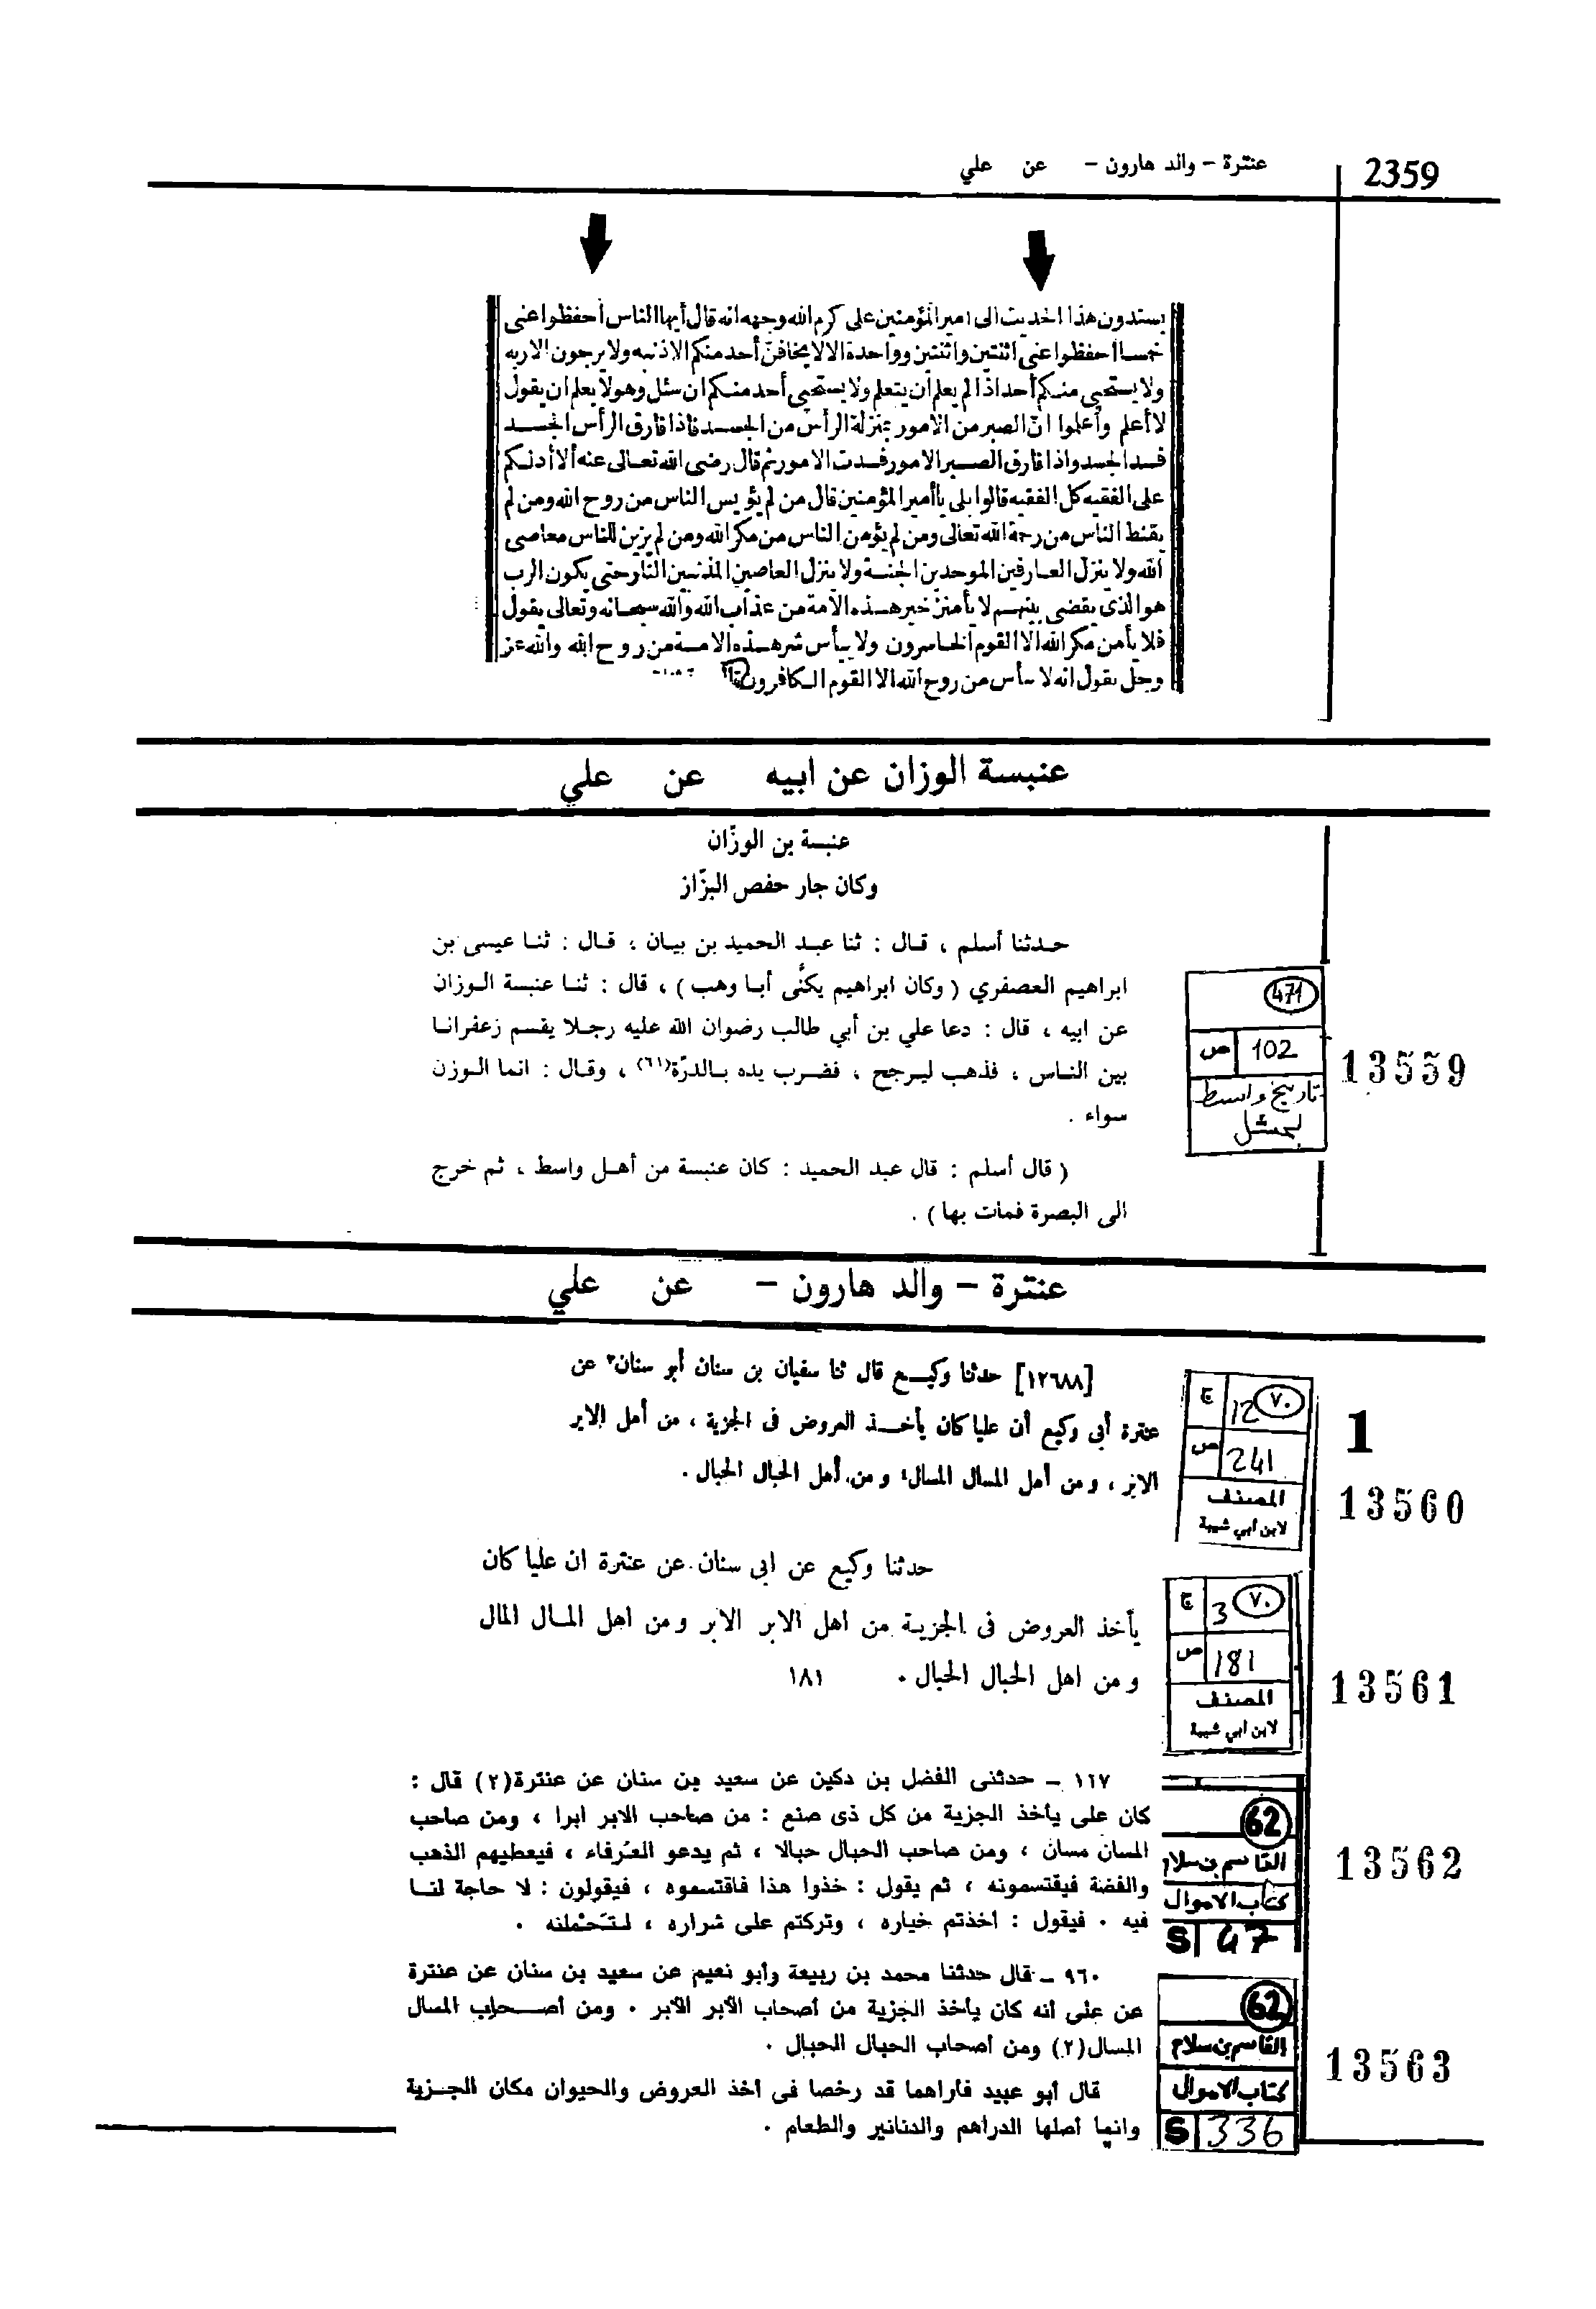 2359
عنترة – والد هارون – عن علي
يسندون هذا الحديث الى امير المؤمنين على كرم الله وجهه انه قال أيها الناس احفظوا عنى
خمسا احفظوا عنى اثنتين واثنتين وواحدة الا لا يخافن أحد منكم الا ذنبه ولا يرجون الا ربه
ولا يستحيى منكم أحد اذا لم يعلم أن يتعلم ولا يستحيى أحد منكم ان سئل وهو لا يعلم ان يقول
لا أعلم واعلموا ان الصبر من الامور بمنزلة الرأس من الجسد فاذا فارق الرأس الجسد
فسد الجسد واذا فارق الصبر الامور فسدت الامور ثم قال رضى الله تعالى عنه ألا أدلكم
على الفقيه كل الفقيه قالوا بلى يا أمير المؤمنين قال من لم يؤيس الناس من روح الله ومن لم
يقنط الناس من رحمة الله تعالى ومن لم يؤمن الناس من مكر الله ومن لم يزين للناس معاصى
الله ولا ينزل العارفين الموحدين الجنة ولا ينزل العاصين المذنبين النار حتى يكون الرب
هو الذى يقضى بينهم لا يأمنن خير هذه الامة من عذاب الله والله سبحانه وتعالى يقول
فلا يأمن مكر الله الا القوم الخاسرون ولا ييأس شر هذه الامة من روح الله والله عز
وجل يقول انه لا ييأس من روح الله الا القوم الكافرون
عنبسة الوزان عن ابيه عن علي
عنبسة بن الوزّان
وكان جار حفص البزّاز
حدثنا أسلم ، قال : ثنا عبد الحميد بن بيان ، قال : ثنا عيسى بن
ابراهيم العصفري ( وكان ابراهيم يكنّى أبا وهب ) ، قال : ثنا عنبسة الوزان
عن ابيه ، قال : دعا علي بن أبي طالب رضوان الله عليه رجلا يقسم زعفرانا
بين الناس ، فذهب ليرجح ، فضرب يده بالدرّة(٦١) ، وقال : انما الوزن
سواء .
( قال أسلم : قال عبد الحميد : كان عنبسة من أهل واسط ، ثم خرج
الى البصرة فمات بها ) .
471
ص 102
تاريخ واسط
لبحشل
13559
عنترة – والد هارون – عن علي
[١٢٦٨٨] حدثنا وكيع قال ثنا سفيان بن سنان أبو سنان٣ عن
عنترة أبى وكيع أن عليا كان يأخذ العروض فى الجزية ، من أهل الابر
الابر ، ومن أهل المسال المسال؛ ومن أهل الحبال الحبال .
ج 12 ٧٠
ص 241
المصنف
لابن أبي شيبة
1
13560
حدثنا وكيع عن ابى سنان عن عنترة ان عليا كان
يأخذ العروض فى الجزية من اهل الابر الابر ومن اهل المال المال
ومن اهل الحبال الحبال . ١٨١
ج 3 ٧٠
ص 181
المصنف
لابن ابي شيبة
13561
١١٧ – حدثنى الفضل بن دكين عن سعيد بن سنان عن عنترة(٢) قال :
كان على يأخذ الجزية من كل ذى صنع : من صاحب الابر ابرا ، ومن صاحب
المسان مسان ، ومن صاحب الحبال حبالا ، ثم يدعو العُرفاء ، فيعطيهم الذهب
والفضة فيقتسمونه ، ثم يقول : خذوا هذا فاقتسموه ، فيقولون : لا حاجة لنا
فيه . فيقول : أخذتم خياره ، وتركتم على شراره ، لتَحْمِلنه .
62
القاسم بن سلام
كتاب الاموال
S 47
13562
٩٦٠ – قال حدثنا محمد بن ربيعة وأبو نعيم عن سعيد بن سنان عن عنترة
عن على أنه كان يأخذ الجزية من أصحاب الأبر الأبر . ومن أصحاب المسال
المسال(٢) ومن أصحاب الحبال الحبال .
قال أبو عبيد فأراهما قد رخصا فى أخذ العروض والحيوان مكان الجزية
وانما أصلها الدراهم والدنانير والطعام .
62
القاسم بن سلام
كتاب الاموال
S 336
13563